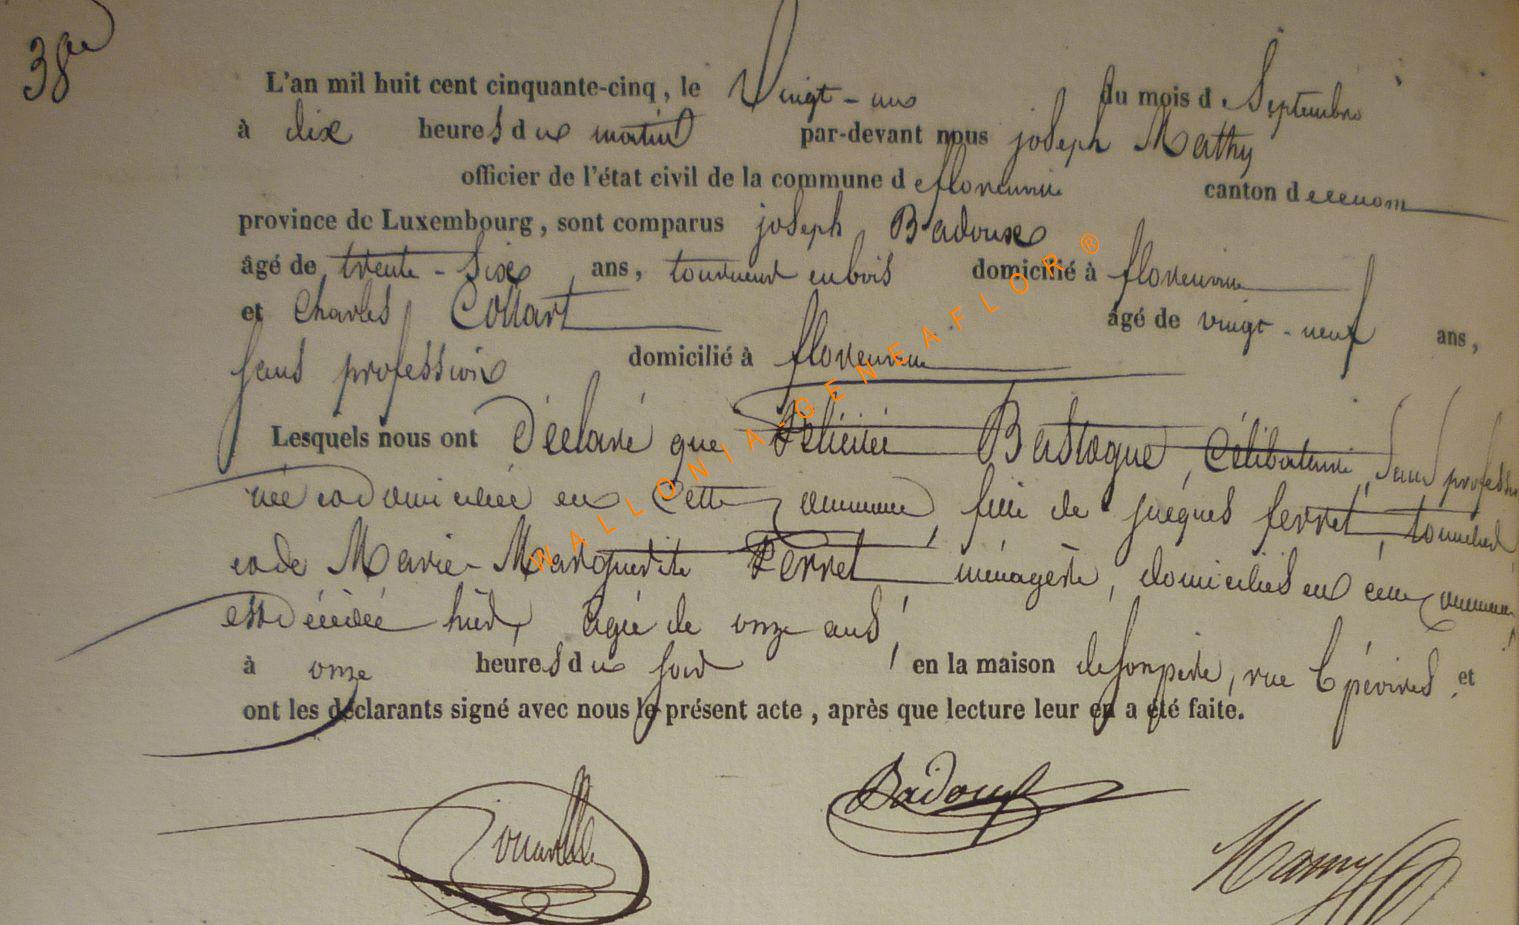 38e
L'an mil huit cent cinquante-cinq, le Vingt-un du mois de Septembre
à dix heures du matin par-devant nous joseph Mathy
officier de l'état civil de la commune de florenville canton de
province de Luxembourg, sont comparus joseph Badoux
âgé de trente-Six ans, tourneur en bois domicilié à florenville
et Charles Collart âgé de vingt-neuf ans,
sans profession domicilié à florenville
Lesquels nous ont Déclaré que Félicité Bastogne, Célibataire, Sans profession
née et domiciliée en Cette commune, fille de jacques ferret,
et de Marie-Marguerite Ferret ménagère, domiciliés en cette commune,
est Décédée hier, agée de onze ans,
à onze heures du soir en la maison, rue et
ont les déclarants signé avec nous le présent acte, après que lecture leur en a été faite.
Badoux
WALLONIA-GENEAFLOR®